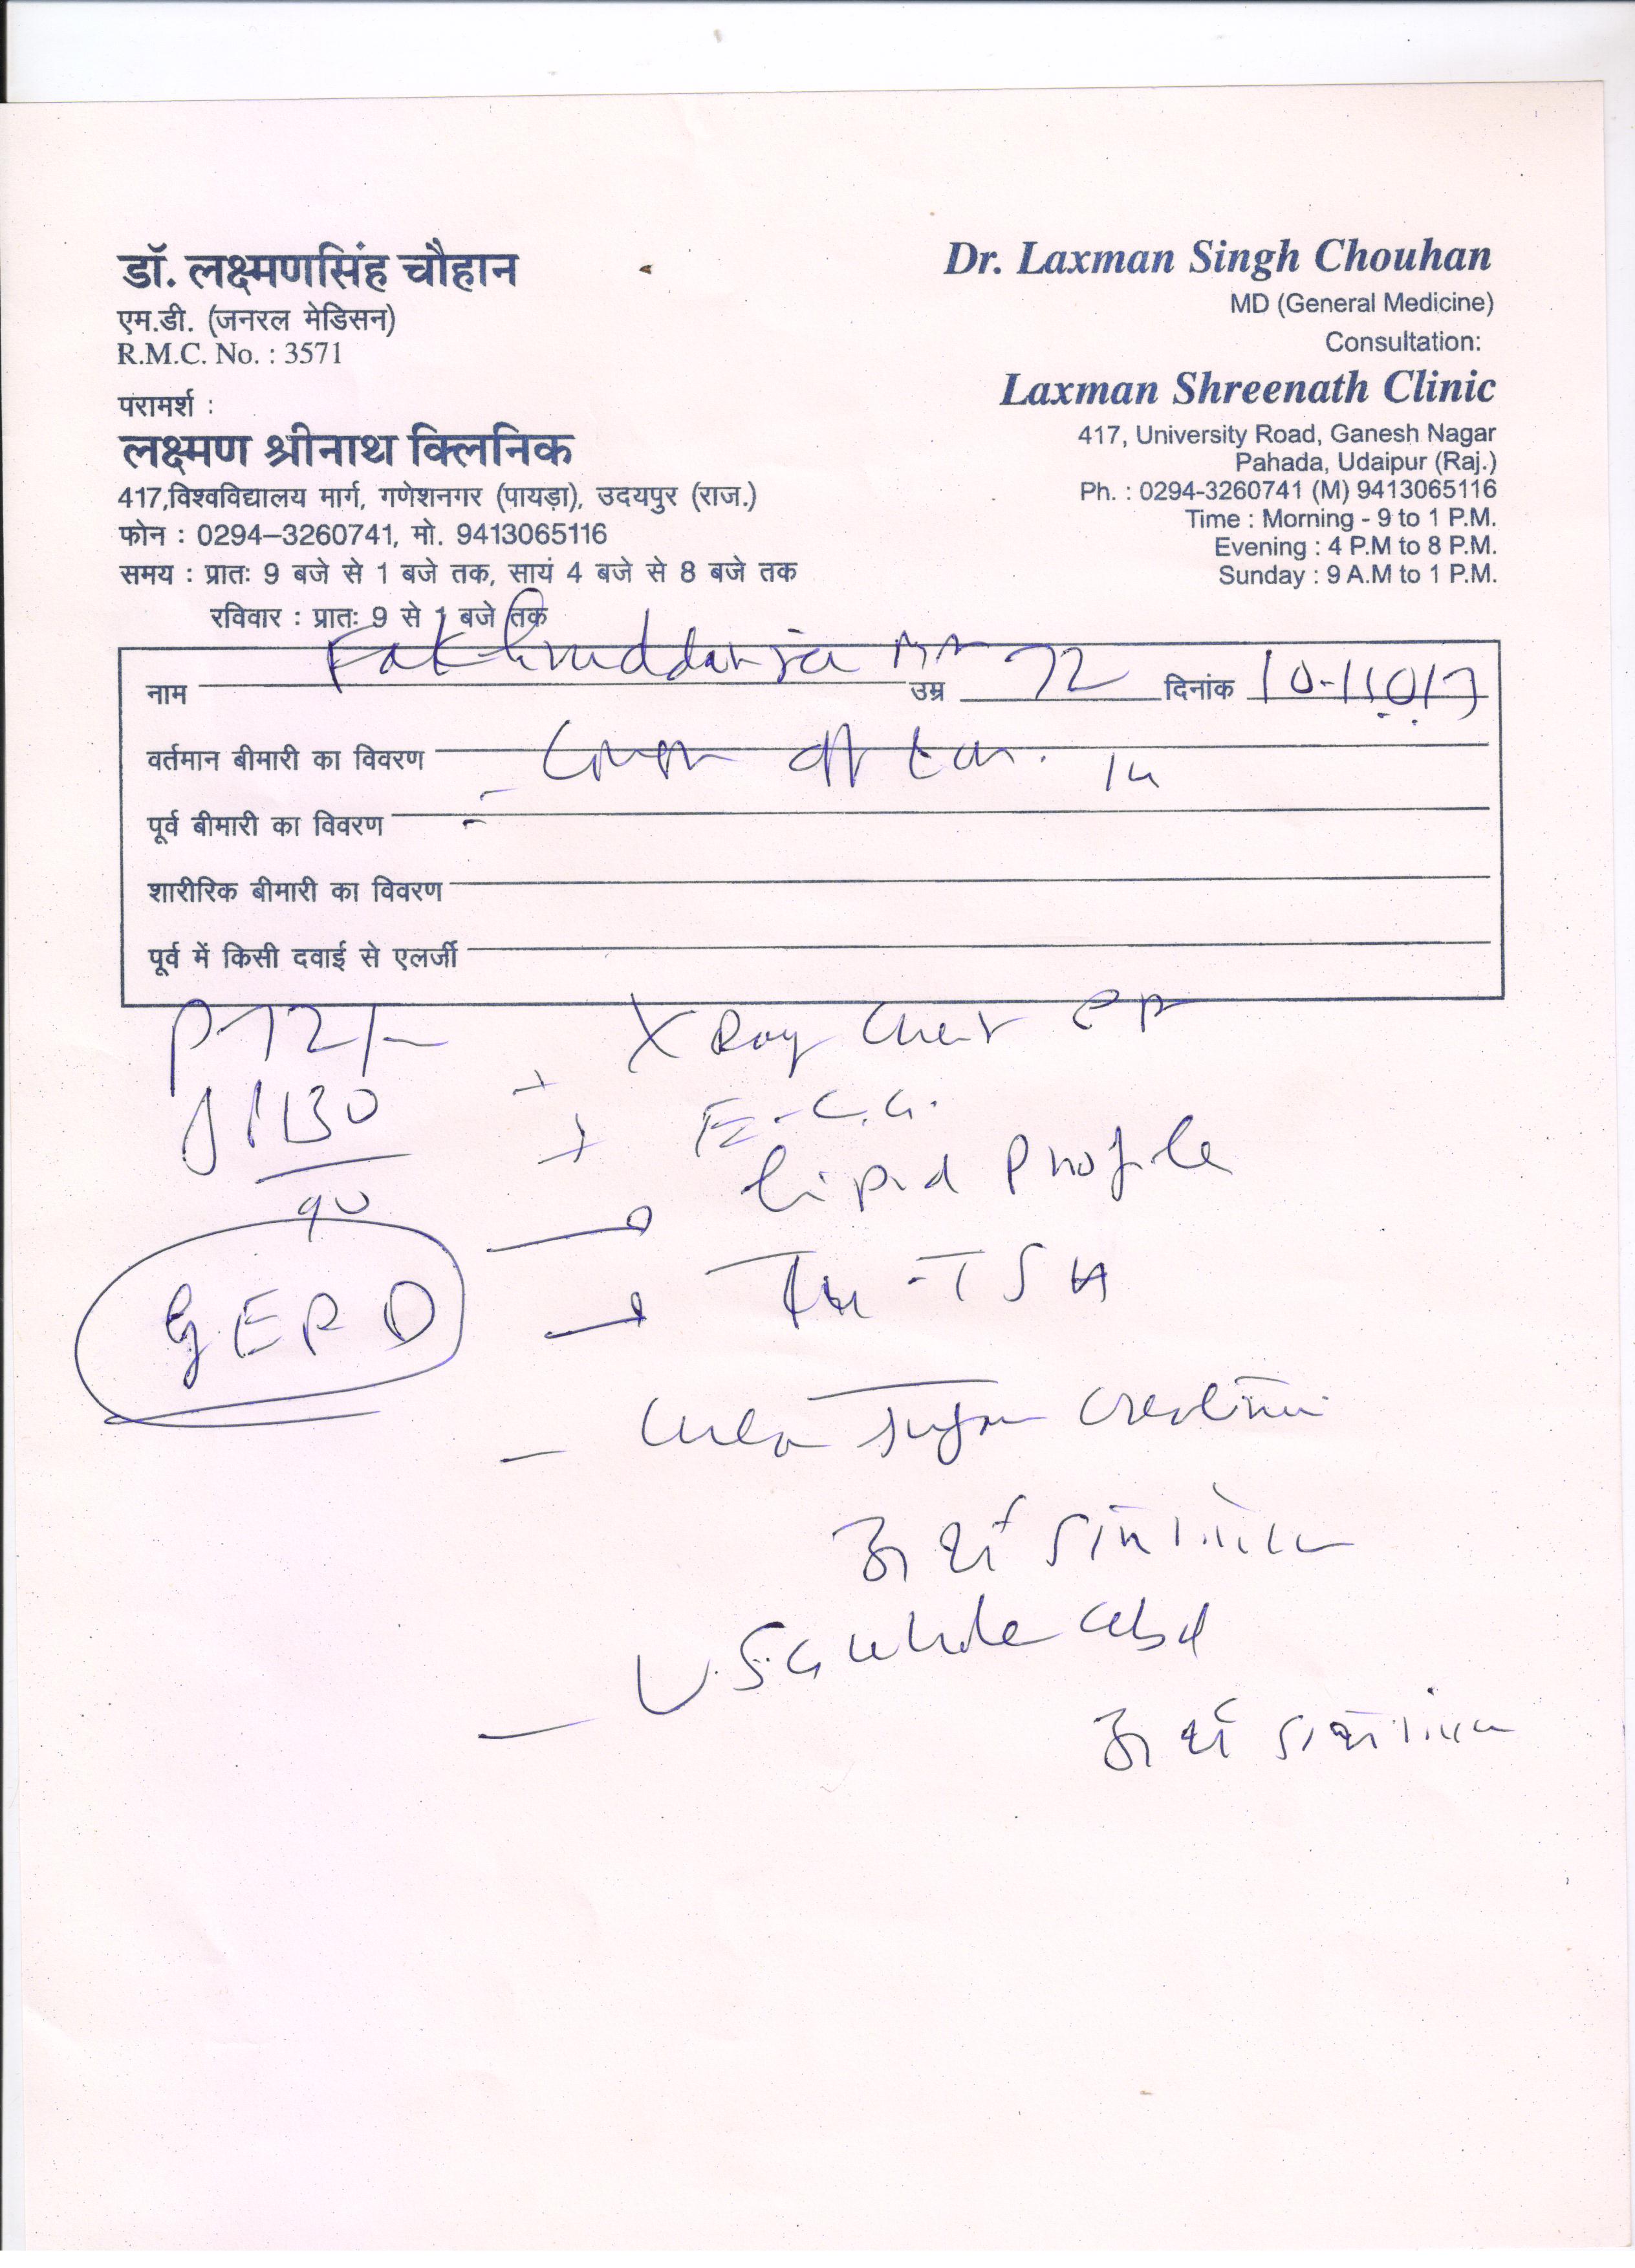 डॉ. लक्ष्मणसिंह चौहान
एम.डी. (जनरल मेडिसन)
R.M.C. No. : 3571
परामर्श :
लक्ष्मण श्रीनाथ क्लिनिक
417,विश्वविद्यालय मार्ग, गणेशनगर (पायड़ा), उदयपुर (राज.)
फोन : 0294–3260741, मो. 9413065116
समय : प्रातः 9 बजे से 1 बजे तक, सायं 4 बजे से 8 बजे तक
रविवार : प्रातः 9 से 1 बजे तक
Dr. Laxman Singh Chouhan
MD (General Medicine)
Consultation:
Laxman Shreenath Clinic
417, University Road, Ganesh Nagar
Pahada, Udaipur (Raj.)
Ph. : 0294-3260741 (M) 9413065116
Time : Morning - 9 to 1 P.M.
Evening : 4 P.M to 8 P.M.
Sunday : 9 A.M to 1 P.M.
नाम उम्र 72 दिनांक
वर्तमान बीमारी का विवरण
पूर्व बीमारी का विवरण
शारीरिक बीमारी का विवरण
पूर्व में किसी दवाई से एलर्जी
P 72/- X Ray Chest
130 E.C.G.
90 Lipid Profile
GERD TSH
Urea Sugar Creatinine
U.S.G whole abd